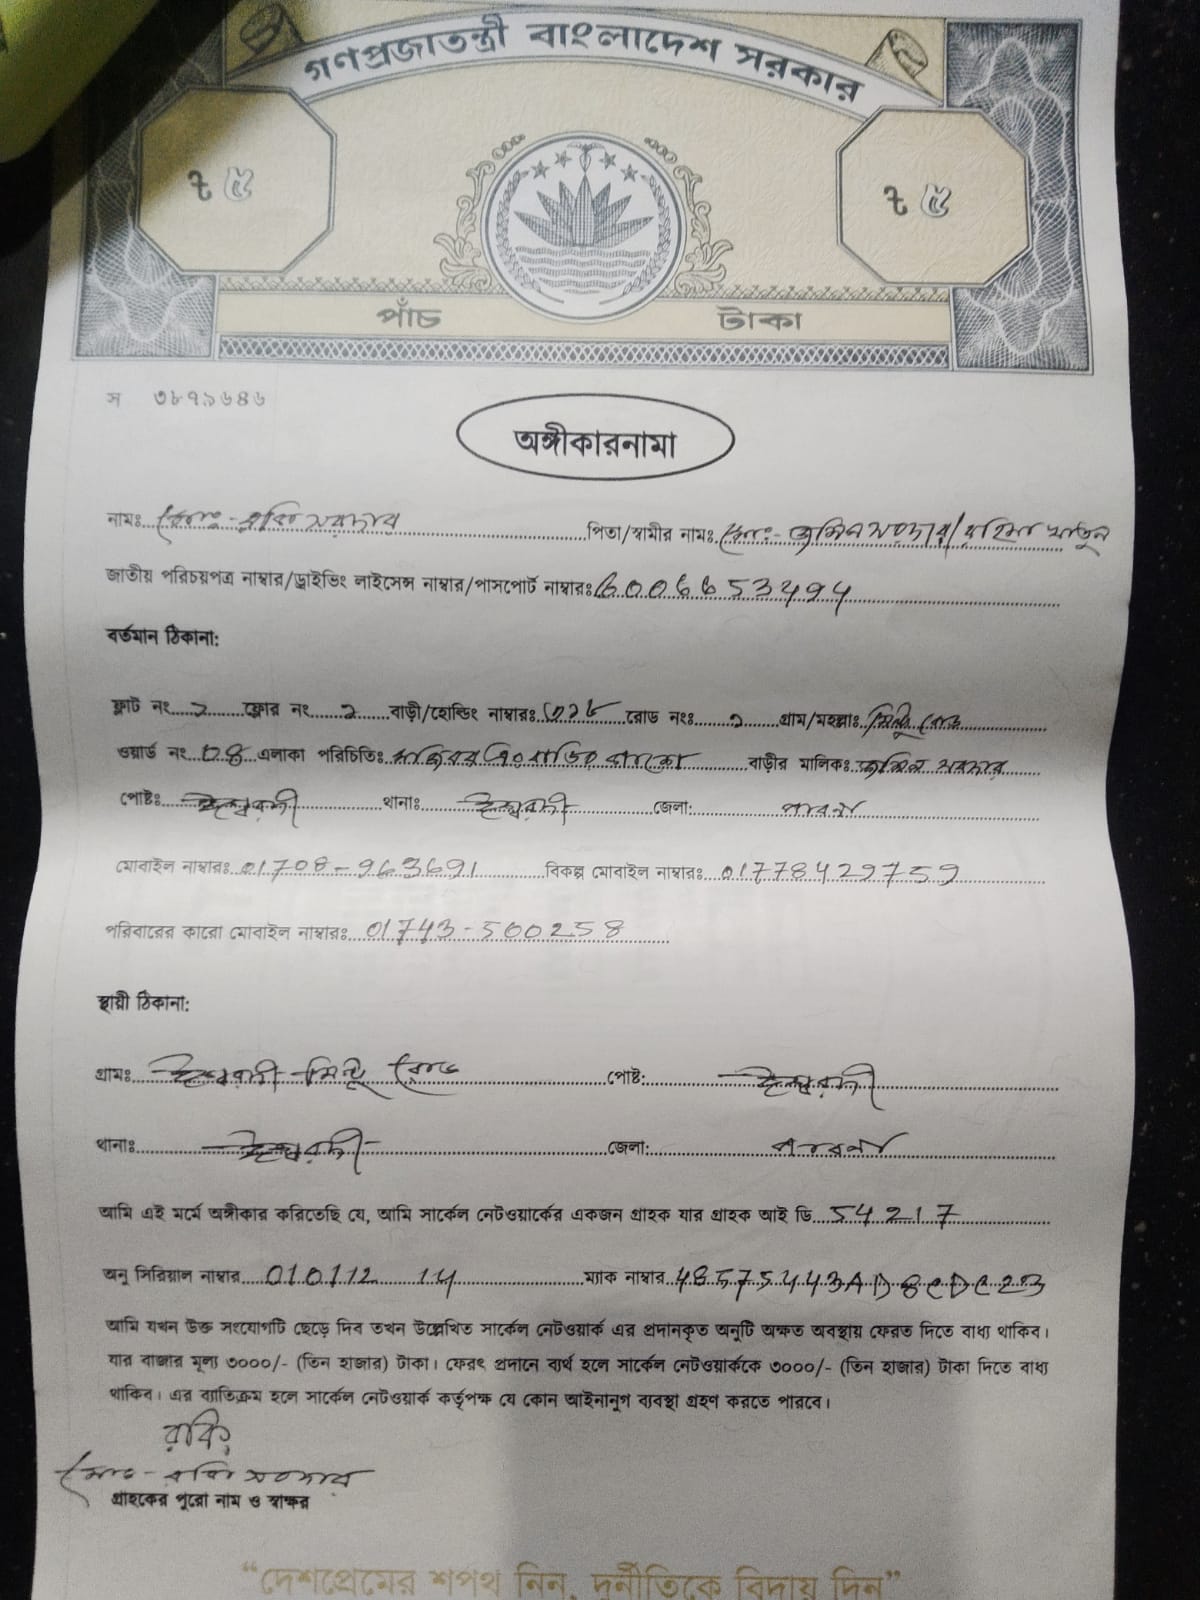 গণপ্রজাতন্ত্রী বাংলাদেশ সরকার
৳ ৫ ৳ ৫
পাঁচ টাকা
স ৩৮৭৯৬৪৬
অঙ্গীকারনামা
নামঃ মোঃ - রকি সরদার পিতা/স্বামীর নামঃ মোঃ - জমিল সরদার/রহিমা খাতুন
জাতীয় পরিচয়পত্র নাম্বার/ড্রাইভিং লাইসেন্স নাম্বার/পাসপোর্ট নাম্বারঃ 6006653494
বর্তমান ঠিকানা:
ফ্লাট নং ফ্লোর নং বাড়ী/হোল্ডিং নাম্বারঃ রোড নংঃ গ্রাম/মহল্লাঃ মিন্টু রোড
ওয়ার্ড নং 04 এলাকা পরিচিতিঃ বাড়ীর মালিকঃ জমিল সরদার
পোষ্টঃ ঈশ্বরদী থানাঃ ঈশ্বরদী জেলা: পাবনা
মোবাইল নাম্বারঃ 01708-963691 বিকল্প মোবাইল নাম্বারঃ 01778429759
পরিবারের কারো মোবাইল নাম্বারঃ 01743-500258
স্থায়ী ঠিকানা:
গ্রামঃ ঈশ্বরদী মিন্টু রোড পোষ্ট: ঈশ্বরদী
থানাঃ ঈশ্বরদী জেলা: পাবনা
আমি এই মর্মে অঙ্গীকার করিতেছি যে, আমি সার্কেল নেটওয়ার্কের একজন গ্রাহক যার গ্রাহক আই ডি 54217
অনু সিরিয়াল নাম্বার 010112 14 ম্যাক নাম্বার 48575443AD8CDC23
আমি যখন উক্ত সংযোগটি ছেড়ে দিব তখন উল্লেখিত সার্কেল নেটওয়ার্ক এর প্রদানকৃত অনুটি অক্ষত অবস্থায় ফেরত দিতে বাধ্য থাকিব।
যার বাজার মূল্য ৩০০০/- (তিন হাজার) টাকা। ফেরৎ প্রদানে ব্যর্থ হলে সার্কেল নেটওয়ার্ককে ৩০০০/- (তিন হাজার) টাকা দিতে বাধ্য
থাকিব। এর ব্যাতিক্রম হলে সার্কেল নেটওয়ার্ক কর্তৃপক্ষ যে কোন আইনানুগ ব্যবস্থা গ্রহণ করতে পারবে।
রকি
মোঃ - রকি সরদার
গ্রাহকের পুরো নাম ও স্বাক্ষর
“দেশপ্রেমের শপথ নিন, দুর্নীতিকে বিদায় দিন”